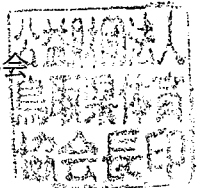 会
公益財団法人
鳥取県体育
協会長印